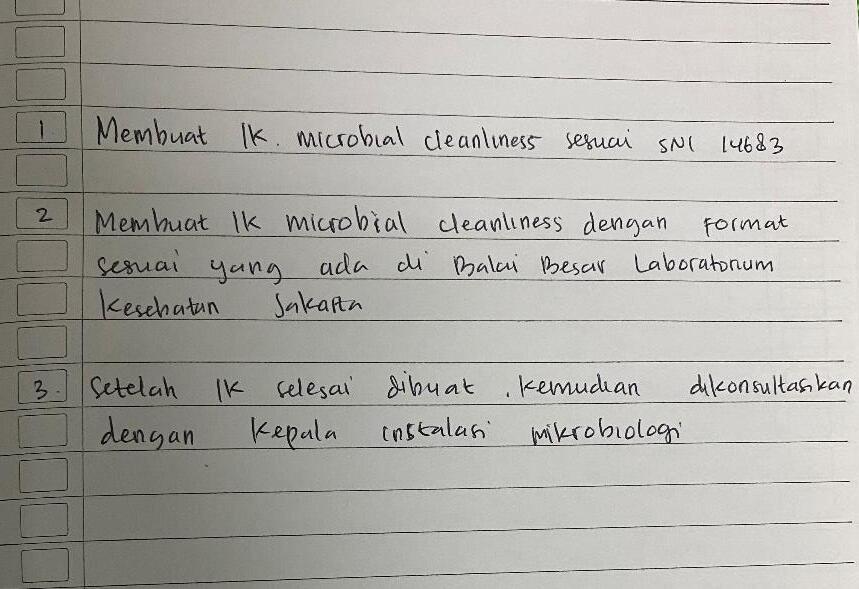 1 Membuat IK. microbial cleanliness sesuai SNI 14683
2 Membuat IK microbial cleanliness dengan format
sesuai yang ada di Balai Besar Laboratorium
Kesehatan Jakarta
3. Setelah IK selesai dibuat, kemudian dikonsultasikan
dengan Kepala instalasi mikrobiologi